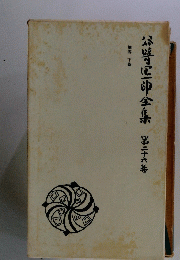 谷崎潤一郎全集
第二十六巻